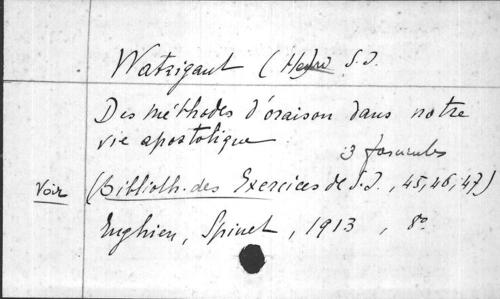 Watrigant (Henri S.J.
Des méthodes d'oraison dans notre
vie apostolique
3 fascicules
Voir (Biblioth. des Exercices de S.I., 45, 46, 47)
Enghien, Spinet, 1913, 8°